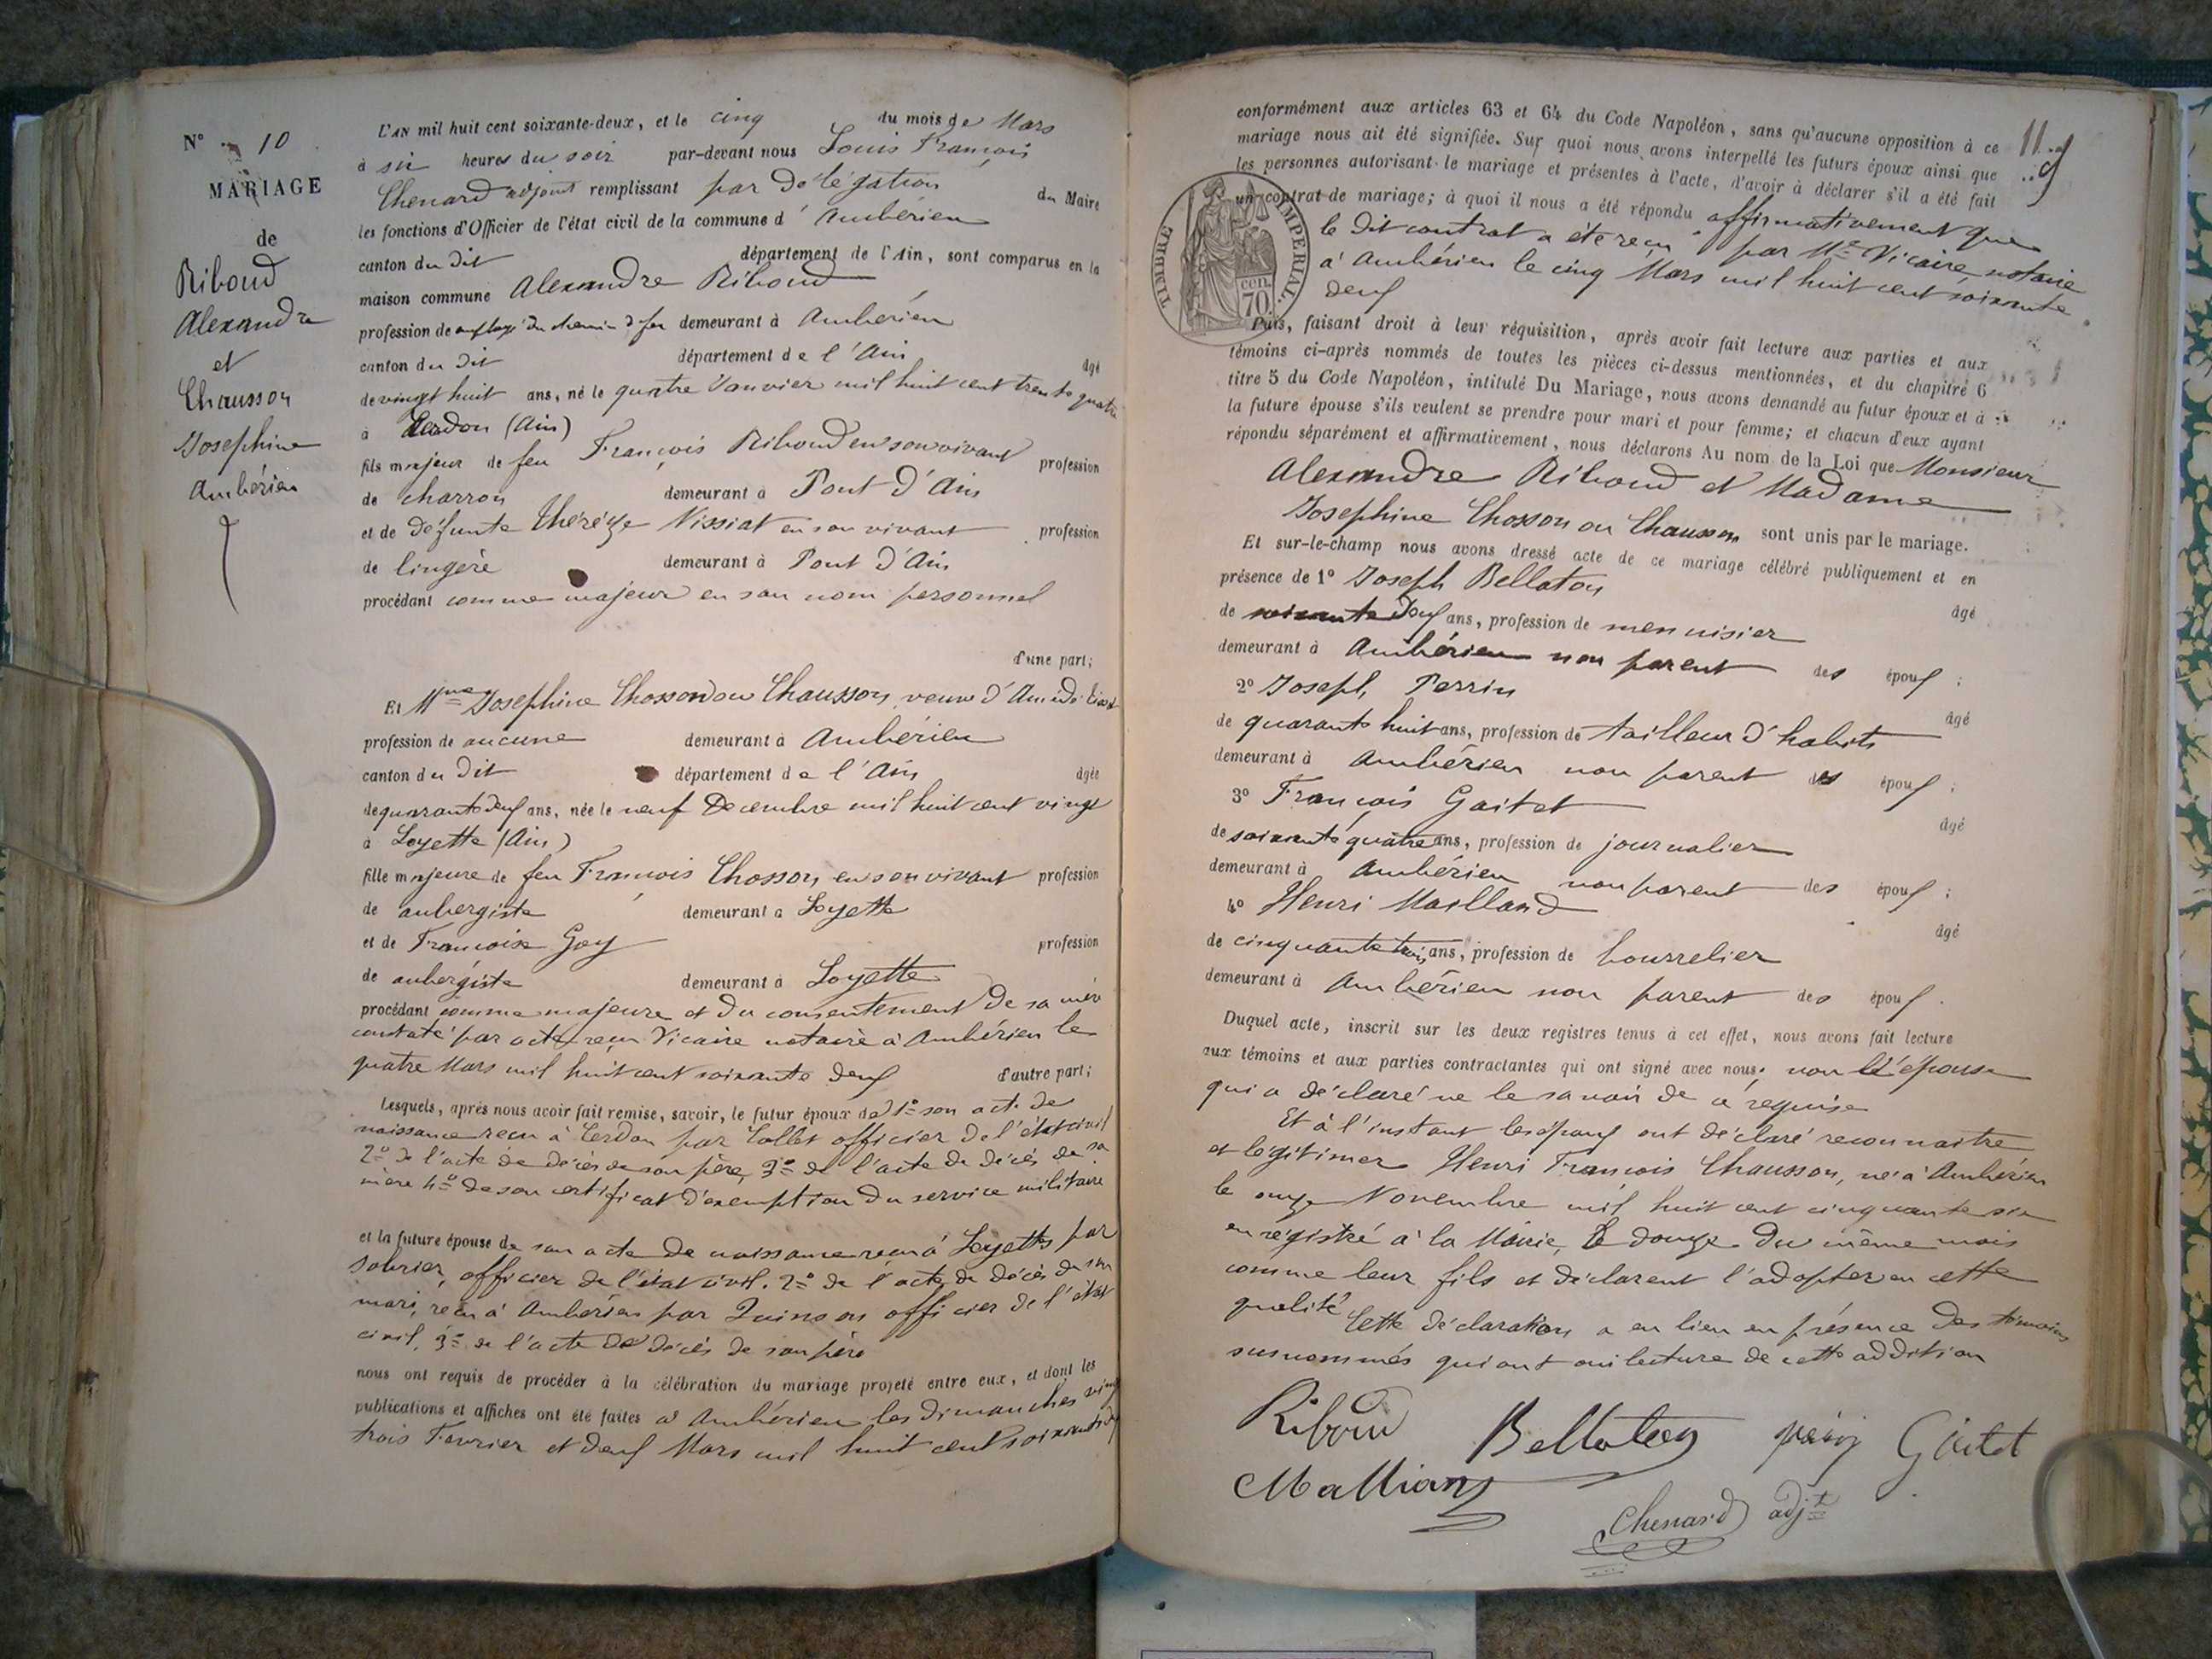 N° 10
MARIAGE
de
Riboud
Alexandre
et
Chausson
Josephine
Ambérieu
L'AN mil huit cent soixante-deux, et le cinq du mois de Mars
à six heures du soir par-devant nous Louis François
Chenard adjoint remplissant par délégation du Maire
les fonctions d'Officier de l'état civil de la commune d' Ambérieu
canton du dit département de l'Ain, sont comparus en la
maison commune Alexandre Riboud
profession de employé du chemin de fer demeurant à Ambérieu
canton du dit département de l'Ain âgé
de vingt huit ans, né le quatre Janvier mil huit cent trente quatre
à Cerdon (Ain)
fils majeur de feu François Riboud en son vivant profession
de charron demeurant à Pont d'Ain
et de défunte Thérèze Vissiat en son vivant profession
de lingère demeurant à Pont d'Ain
procédant comme majeur en son nom personnel
d'une part;
Et Mme Josephine Chosson ou Chausson, veuve d'Amédé
profession de aucune demeurant à Ambérieu
canton du dit département de l'Ain âgée
de quarante deux ans, née le neuf Decembre mil huit cent vingt
à Loyette (Ain)
fille majeure de feu François Chosson en son vivant profession
de aubergiste demeurant à Loyette
et de Françoise Goy profession
de aubergiste demeurant à Loyette
procédant comme majeure et du consentement de sa mère
constaté par acte reçu Vicaire notaire à Ambérieu le
quatre Mars mil huit cent soixante deux d'autre part;
Lesquels, après nous avoir fait remise, savoir, le futur époux de 1° son acte de
naissance reçu à Cerdon par Collet officier de l'état civil
2° de l'acte de décès de son père, 3° de l'acte de décès de sa
mère 4° de son certificat d'exemption du service militaire
et la future épouse de son acte de naissance reçu à Loyettes par
Sobrier, officier de l'état civil. 2° de l'acte de décès de son
mari, reçu à Ambérieu par Quinson officier de l'état
civil, 3° de l'acte de décès de son père
nous ont requis de procéder à la célébration du mariage projeté entre eux, et dont les
publications et affiches ont été faites à Ambérieu les dimanches vingt
trois Fevrier et deux Mars mil huit cent soixante deux
11.
conformément aux articles 63 et 64 du Code Napoléon, sans qu'aucune opposition à ce
mariage nous ait été signifiée. Sur quoi nous avons interpellé les futurs époux ainsi que
les personnes autorisant le mariage et présentes à l'acte, d'avoir à déclarer s'il a été fait
un contrat de mariage; à quoi il nous a été répondu affirmativement que
le dit contrat a été reçu par Me Vicaire, notaire
à Ambérieu le cinq Mars mil huit cent soixante
deux
TIMBRE IMPERIAL.
cen.
70
Puis, faisant droit à leur réquisition, après avoir fait lecture aux parties et aux
témoins ci-après nommés de toutes les pièces ci-dessus mentionnées, et du chapitre 6
titre 5 du Code Napoléon, intitulé Du Mariage, nous avons demandé au futur époux et à
la future épouse s'ils veulent se prendre pour mari et pour femme; et chacun d'eux ayant
répondu séparément et affirmativement, nous déclarons Au nom de la Loi que Monsieur
Alexandre Riboud et Madame
Josephine Chosson ou Chausson sont unis par le mariage.
Et sur-le-champ nous avons dressé acte de ce mariage célébré publiquement et en
présence de 1° Joseph Bellaton âgé
de soixante deux ans, profession de menuisier
demeurant à Ambérieu non parent des époux;
2° Joseph Perrin âgé
de quarante huit ans, profession de tailleur d'habits
demeurant à Ambérieu non parent des époux;
3° François Gaitet âgé
de soixante quatre ans, profession de journalier
demeurant à Ambérieu non parent des époux;
4° Henri Mailland âgé
de cinquante trois ans, profession de bourrelier
demeurant à Ambérieu non parent des époux.
Duquel acte, inscrit sur les deux registres tenus à cet effet, nous avons fait lecture
aux témoins et aux parties contractantes qui ont signé avec nous; non l'épouse
qui a déclaré ne le savoir de ce réquise
Et à l'instant les époux ont déclaré reconnaitre
et légitimer Henri François Chausson, né à Ambérieu
le onze Novembre mil huit cent cinquante six
enregistré à la Mairie, le douze du même mois
comme leur fils et déclarent l'adopter en cette
qualité Cette déclaration a eu lieu en présence des témoins
susnommés qui ont oui lecture de cette addition
Riboud Bellaton Gaitet
Chenard adjt